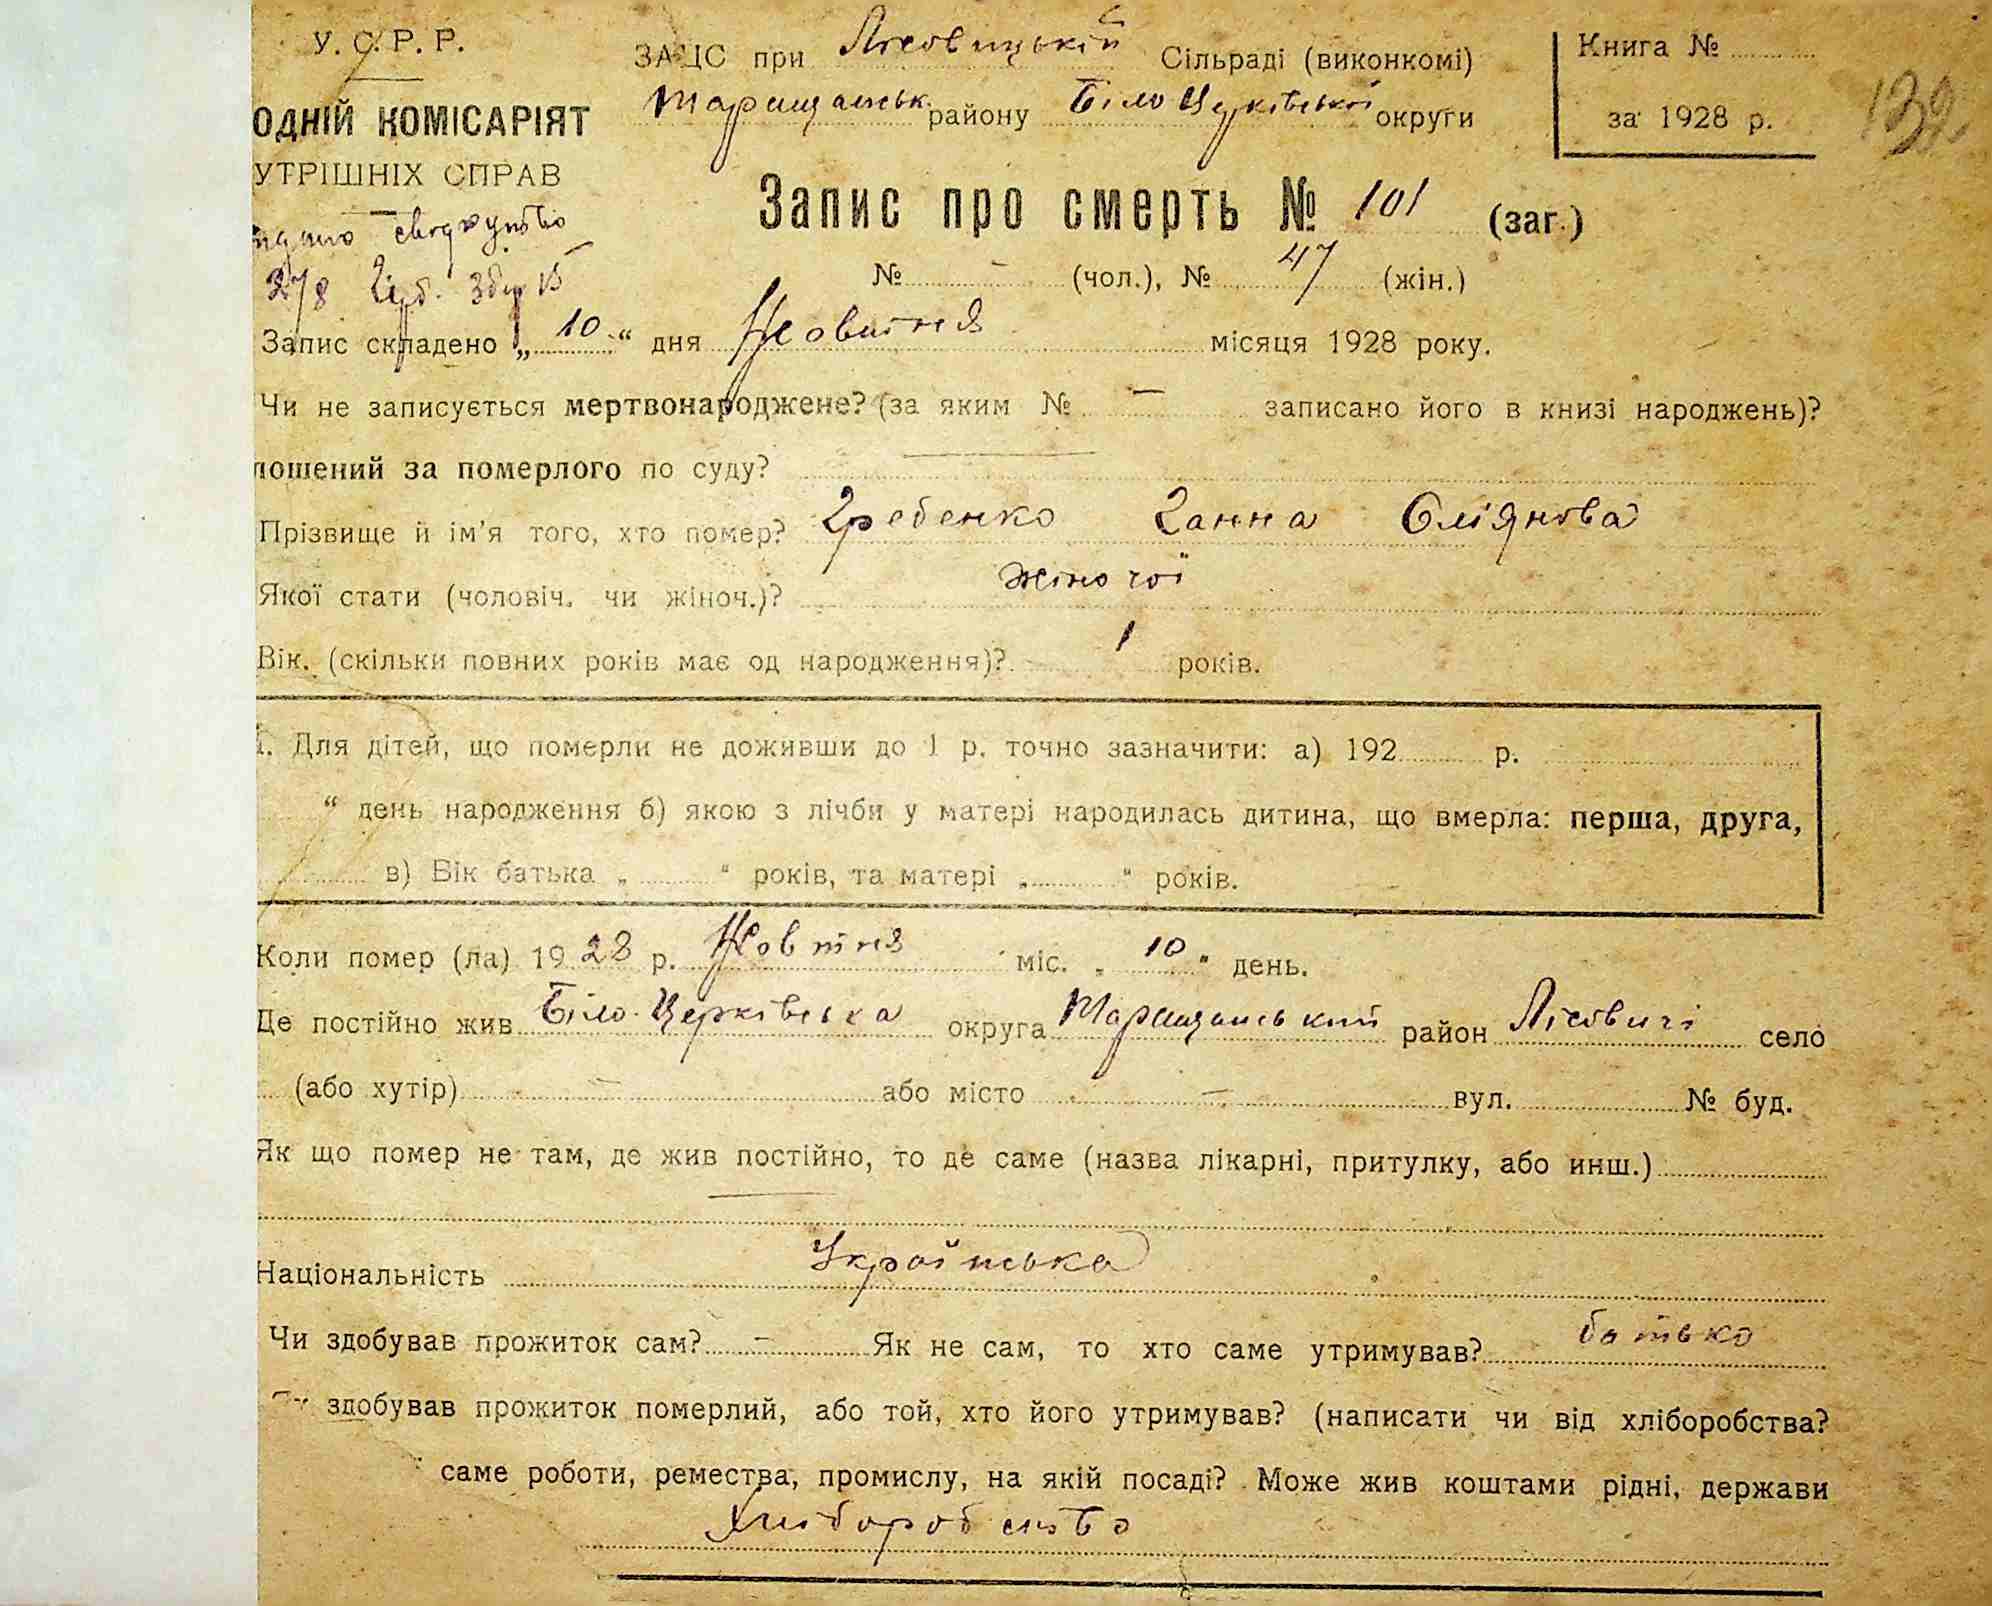 У. С. Р. Р.
ЗАЦС при Лісовицькій Сільраді (виконкомі)
Книга №
Таращанськ. району Біло Церківської округи
за 1928 р.
132
ОДНІЙ КОМІСАРІЯТ
УТРІШНІХ СПРАВ
Запис про смерть № 101 (заг.)
278
№ – (чол.), № 47 (жін.)
Запис складено „ 10 “ дня Жовтня місяця 1928 року.
Чи не записується мертвонароджене? (за яким № – записано його в книзі народжень)?
лошений за померлого по суду?
Прізвище й ім'я того, хто помер? Гребенко Ганна Оліянова
Якої стати (чоловіч. чи жіноч.)? жіночої
Вік. (скільки повних років має од народження)? 1 років.
1. Для дітей, що померли не доживши до 1 р. точно зазначити: а) 192 р.
“ день народження б) якою з лічби у матері народилась дитина, що вмерла: перша, друга,
в) Вік батька „ “ років, та матері „ “ років.
Коли помер (ла) 1928 р. Жовтня міс. „ 10 “ день.
Де постійно жив Біло-Церківська округа Таращанський район Лісовичі село
(або хутір) – або місто – вул. № буд.
Як що помер не там, де жив постійно, то де саме (назва лікарні, притулку, або инш.)
Національність Українська
Чи здобував прожиток сам? – Як не сам, то хто саме утримував? батько
здобував прожиток померлий, або той, хто його утримував? (написати чи від хліборобства?
саме роботи, ремества, промислу, на якій посаді? Може жив коштами рідні, держави
Хліборобство